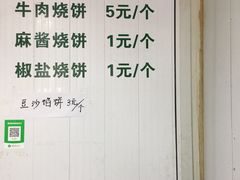 牛肉烧饼 5元/个
麻酱烧饼 1元/个
椒盐烧饼 1元/个
豆沙馅饼 3元/个